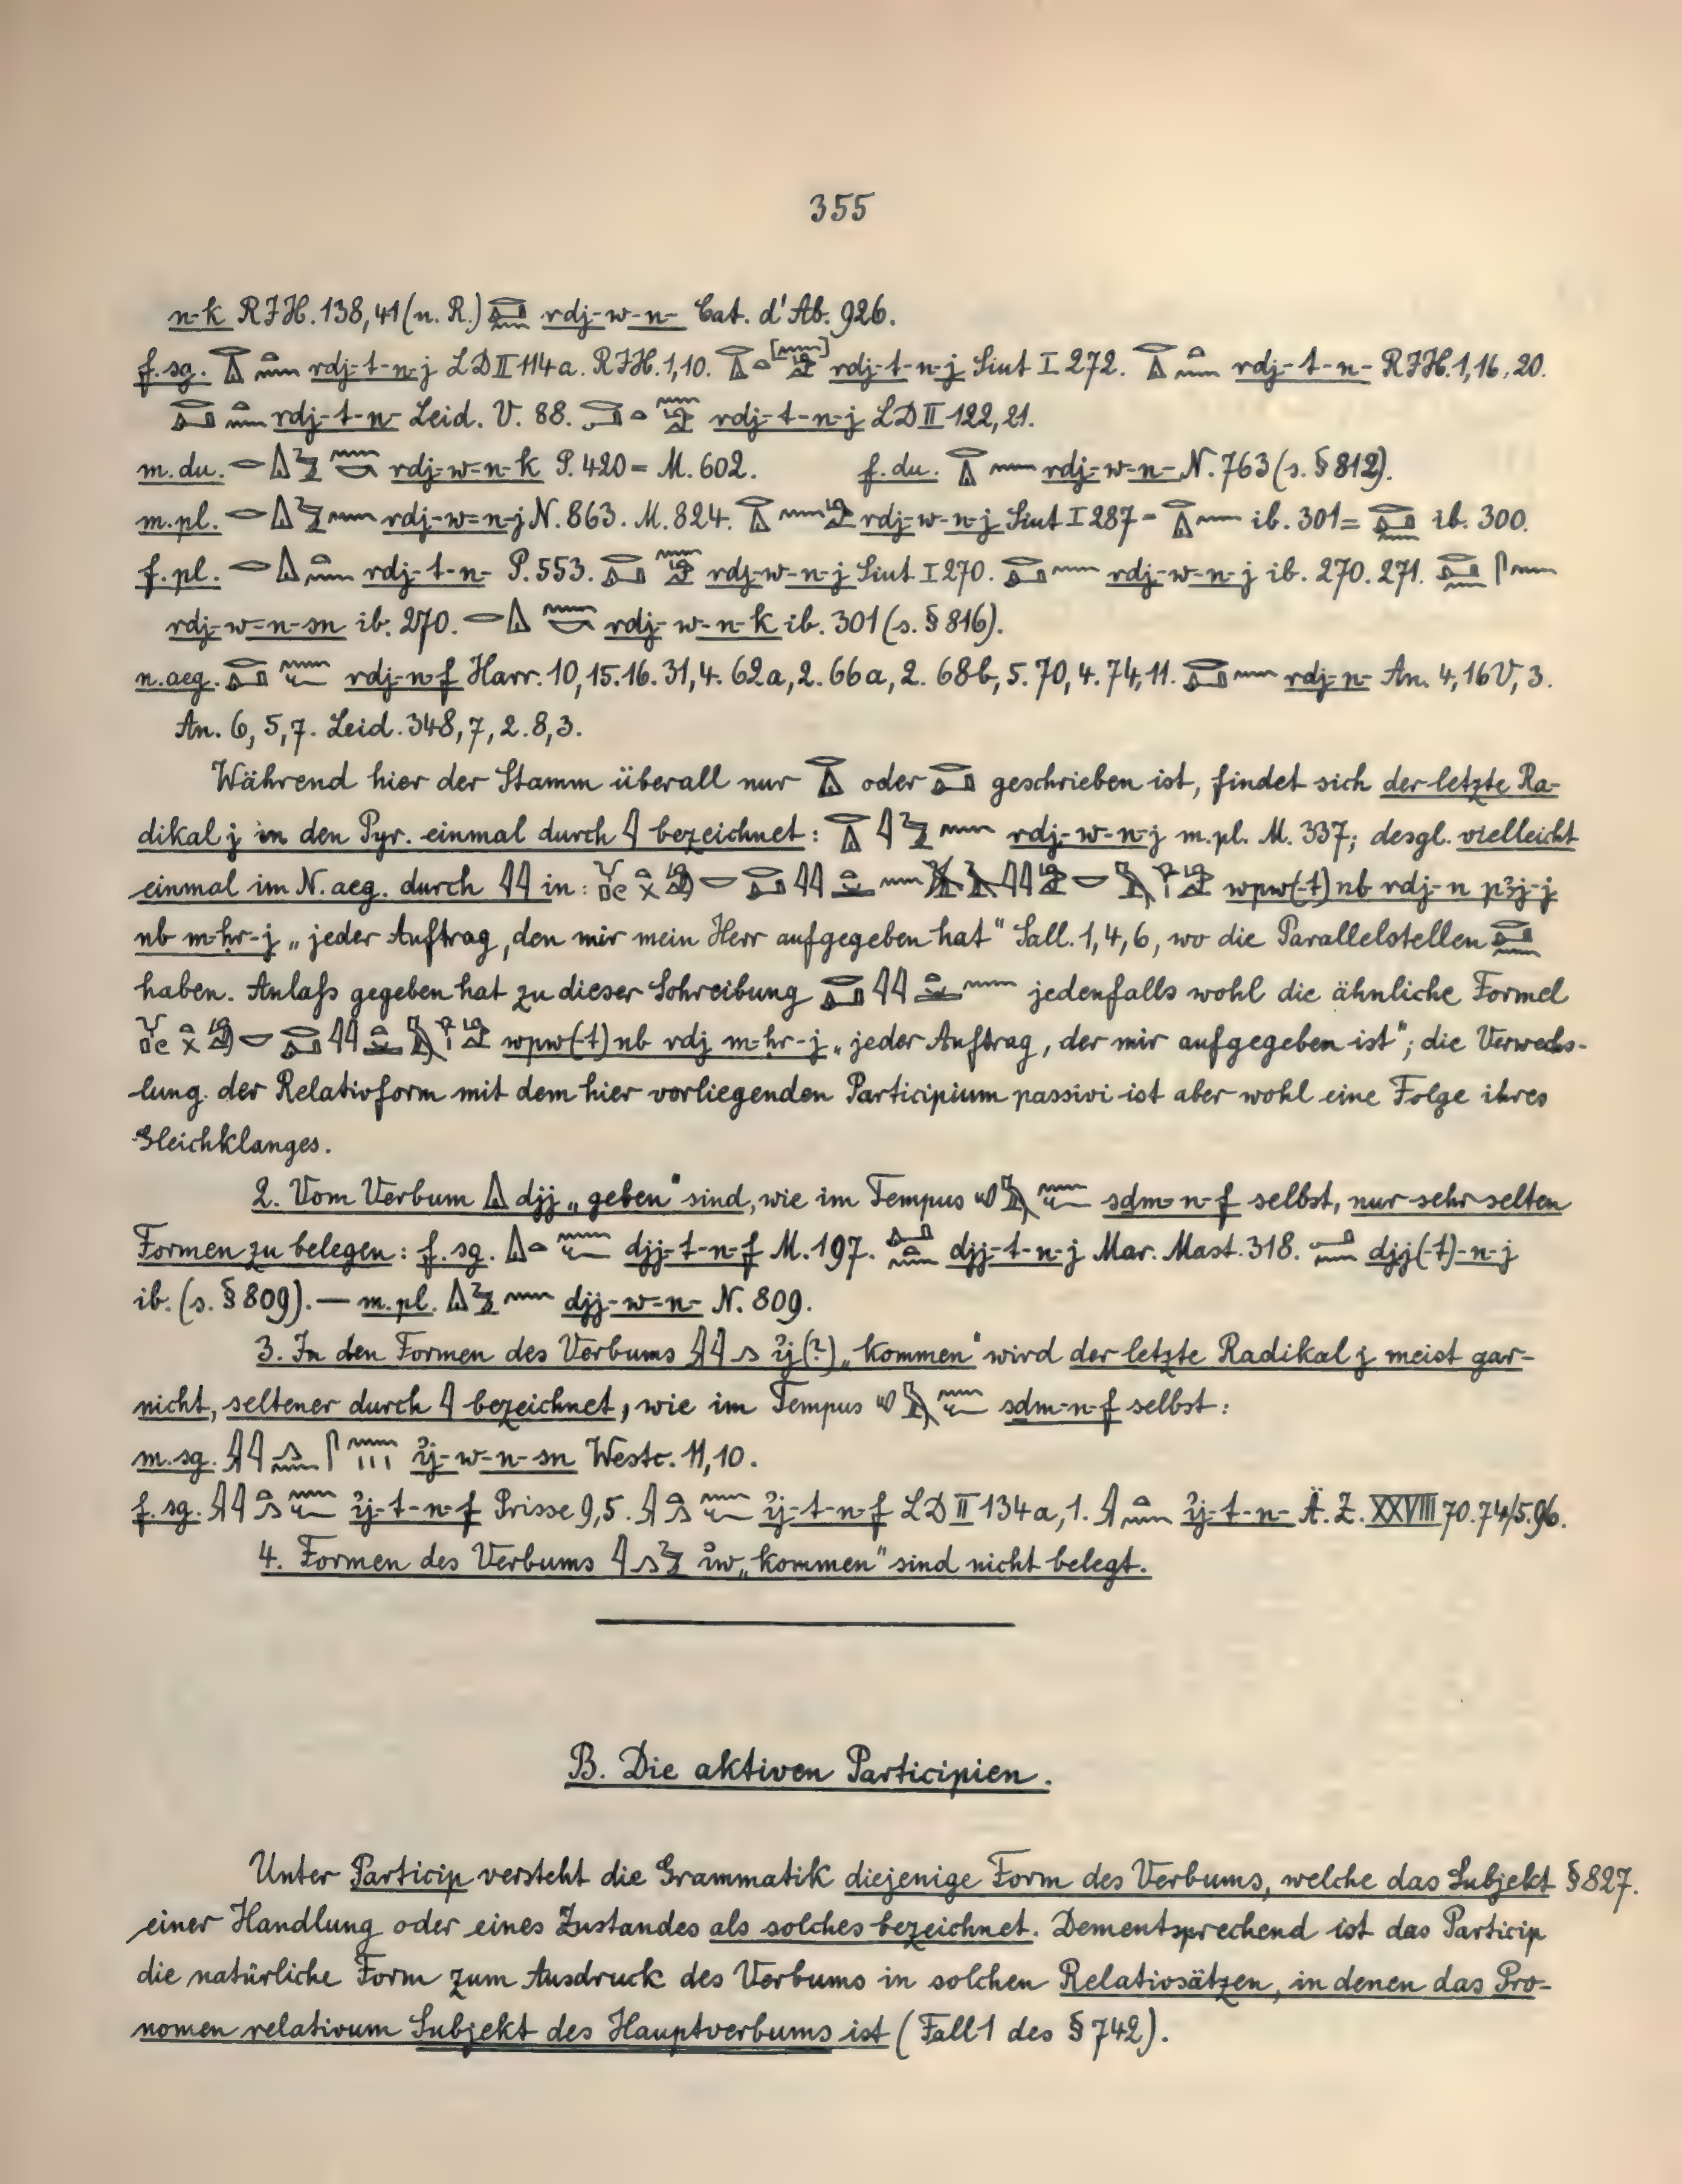 355
n-k RIH. 138,41 (n. R.) rdj-w-n- Cat. d'Ab. 926.
f. sg. rdj-t-n-j LD II 114a. RIH. 1,10. rdj-t-n-j Siut I 272. rdj-t-n- RIH. 1,16. 20.
rdj-t-n- Leid. V. 88. rdj-t-n-j LD II 122,21.
m. du. rdj-w-n-k P. 420 = M. 602. f. du. rdj-w-n- N. 763 (s. § 812).
m. pl. rdj-w-n-j N. 863. M. 824. rdj-w-n-j Siut I 287 = ib. 301 = ib. 300.
f. pl. rdj-t-n- P. 553. rdj-w-n-j Siut I 270. rdj-w-n-j ib. 270. 271.
rdj-w-n-sn ib. 270. rdj-w-n-k ib. 301 (s. § 816).
n. aeg. rdj-n-f Harr. 10, 15. 16. 31, 4. 62a, 2. 66a, 2. 68b, 5. 70, 4. 74, 11. rdj-n- An. 4, 16 V, 3.
An. 6, 5, 7. Leid. 348, 7, 2. 8, 3.
Während hier der Stamm überall nur oder geschrieben ist, findet sich der letzte Ra-
dikal j in den Pyr. einmal durch 𓇋 bezeichnet: rdj-w-n-j m. pl. M. 337; desgl. vielleicht
einmal im N. aeg. durch 𓇋𓇋 in: wpw(-t) nb rdj-n pꜣj-j
nb m-ḥr-j „jeder Auftrag, den mir mein Herr aufgegeben hat“ Sall. 1, 4, 6, wo die Parallelstellen
haben. Anlaſs gegeben hat zu dieser Schreibung jedenfalls wohl die ähnliche Formel
wpw(-t) nb rdj m-ḥr-j „jeder Auftrag, der mir aufgegeben ist“; die Verwechs-
lung der Relativform mit dem hier vorliegenden Participium passivi ist aber wohl eine Folge ihres
Gleichklanges.
2. Vom Verbum djj „geben“ sind, wie im Tempus sdm-n-f selbst, nur sehr selten
Formen zu belegen: f. sg. djj-t-n-f M. 197. djj-t-n-j Mar. Mast. 318. djj(-t)-n-j
ib. (s. § 809). — m. pl. djj-w-n- N. 809.
3. In den Formen des Verbums ꞽj (?) „kommen“ wird der letzte Radikal j meist gar-
nicht, seltener durch 𓇋 bezeichnet, wie im Tempus sdm-n-f selbst:
m. sg. ꞽj-w-n-sn Westc. 11, 10.
f. sg. ꞽj-t-n-f Prisse 9, 5. ꞽj-t-n-f LD II 134a, 1. ꞽj-t-n- Ä. Z. XXVIII 70. 74/5. 96.
4. Formen des Verbums ꞽw „kommen“ sind nicht belegt.
B. Die aktiven Participien.
Unter Particip versteht die Grammatik diejenige Form des Verbums, welche das Subjekt § 827.
einer Handlung oder eines Zustandes als solches bezeichnet. Dementsprechend ist das Particip
die natürliche Form zum Ausdruck des Verbums in solchen Relativsätzen, in denen das Pro-
nomen relativum Subjekt des Hauptverbums ist (Fall 1 des § 742).